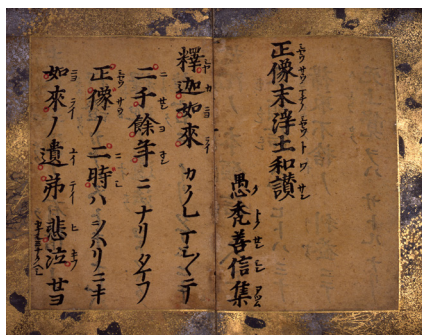 正像末淨土和讃
愚禿善信集
釋迦如來カクレマシ〱テ
二千餘年ニナリタマフ
正像ノ二時ハオハリニキ
如來ノ遺弟悲泣セヨ